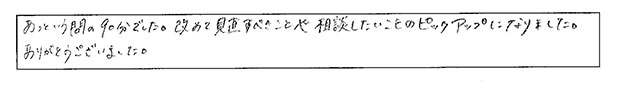 あっという間の90分でした。改めて見直すべきことや相談したいことのピックアップになりました。
ありがとうございました。